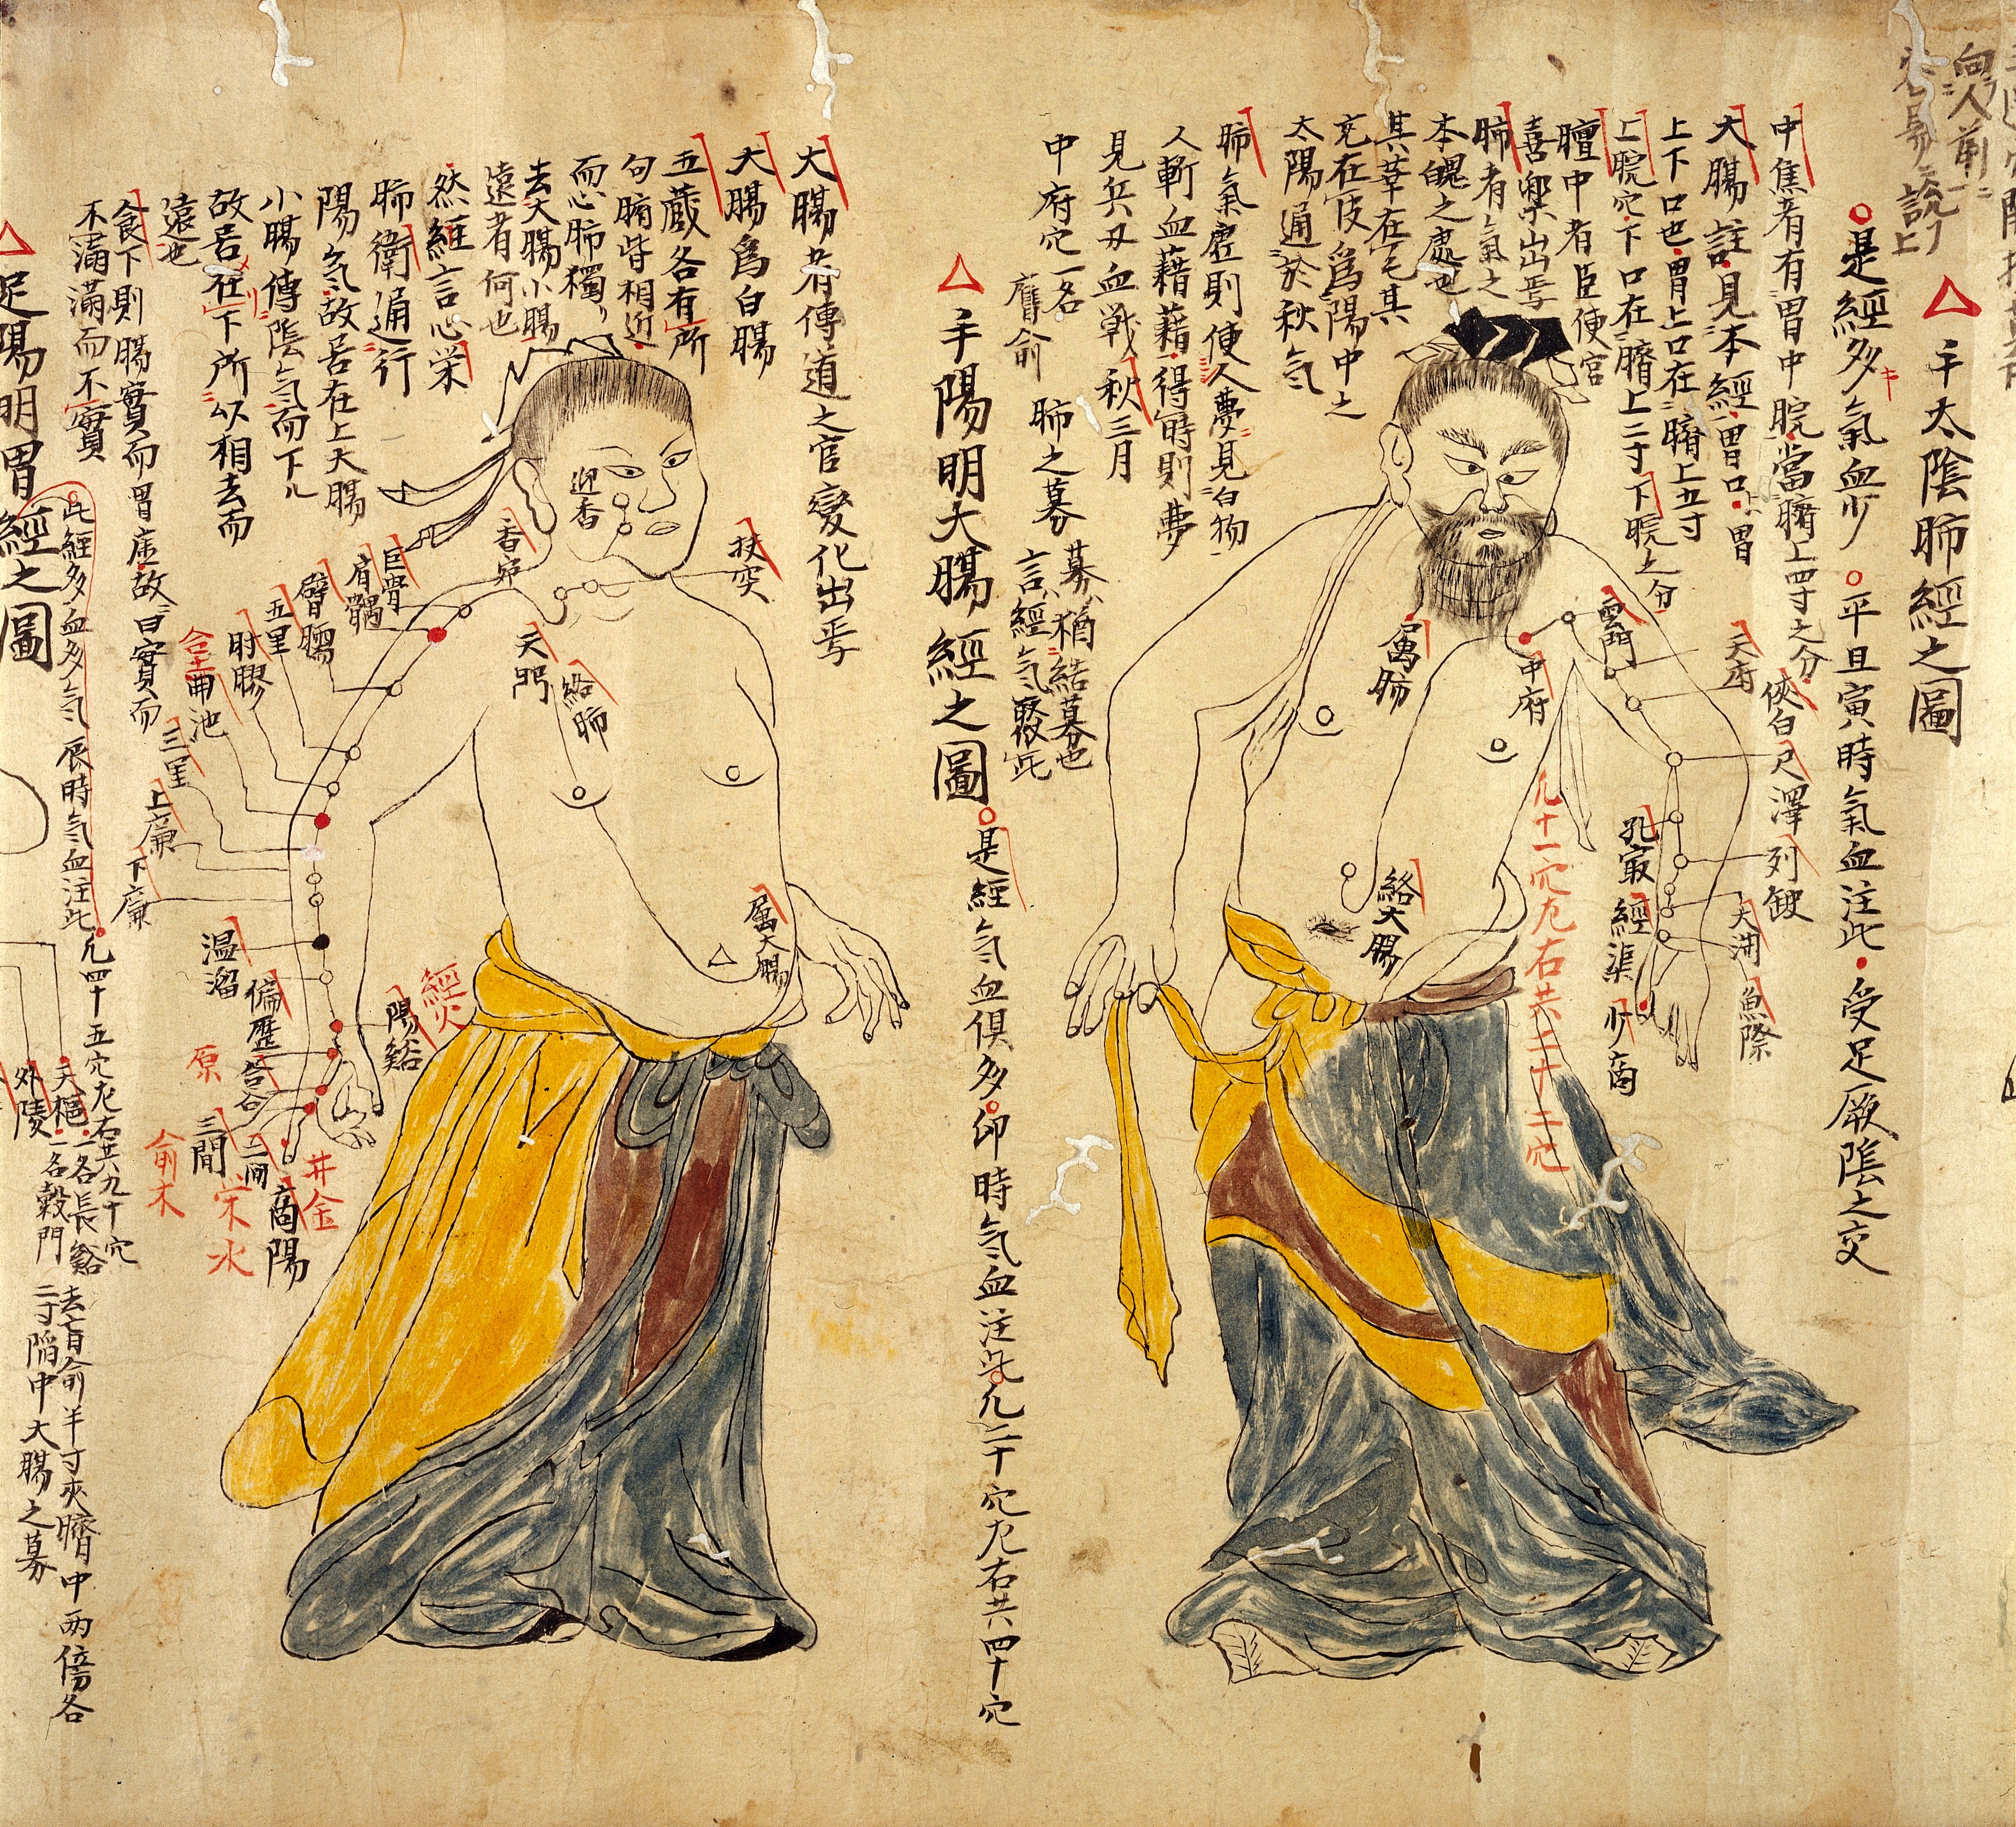 向人前
△手太陰肺經之圖
○是經多氣血少 ○平旦寅時氣血注此・受足厥陰之交
中焦者有胃中脘當臍上四寸之分
大腸註見本經胃口上胃
上下口也胃上口在臍上五寸
上脘穴下口在臍上二寸下脘之分
膻中者臣使官
喜樂出焉
肺者氣之
本魄之處也
其華在毛其
充在皮為陽中之
太陽通於秋氣
肺氣虛則使人夢見白物
人斬血藉藉得時則夢
見兵刃血戰秋三月
中府穴一名膺俞
肺之募
募猶結募也
言經氣聚此
雲門
中府
屬肺
天府
俠白
尺澤
孔最
列缺
經渠
大渊
魚際
少商
絡大腸
凡十一穴左右共二十二穴
△手陽明大腸經之圖
○是經氣血俱多 卯時氣血注此凡二十穴左右共四十穴
大腸者傳道之官變化出焉
大腸為白腸
五蔵各有所
句腑皆相近
而心肺獨
去大腸小腸
遠者何也
然經言心栄
肺衛通行
陽氣故居在上大腸
小腸傳陰氣而下
故居在下所以相去而
遠也
食下則腸實而胃虛故曰實而
不滿滿而不實
迎香
扶突
天門
絡肺
巨骨
肩髃
臂臑
五里
肘髎
合土
曲池
三里
上廉
下廉
温溜
偏歷
陽谿
經火
原
合谷
三間
俞木
二間
栄水
井金
商陽
屬大腸
△足陽明胃經之圖
此經多血多氣 辰時氣血注此 凡四十五穴左右共九十穴
天樞一名長谿
一名穀門
去肓俞半寸夾臍中两傍各
二寸陷中大腸之募
外陵